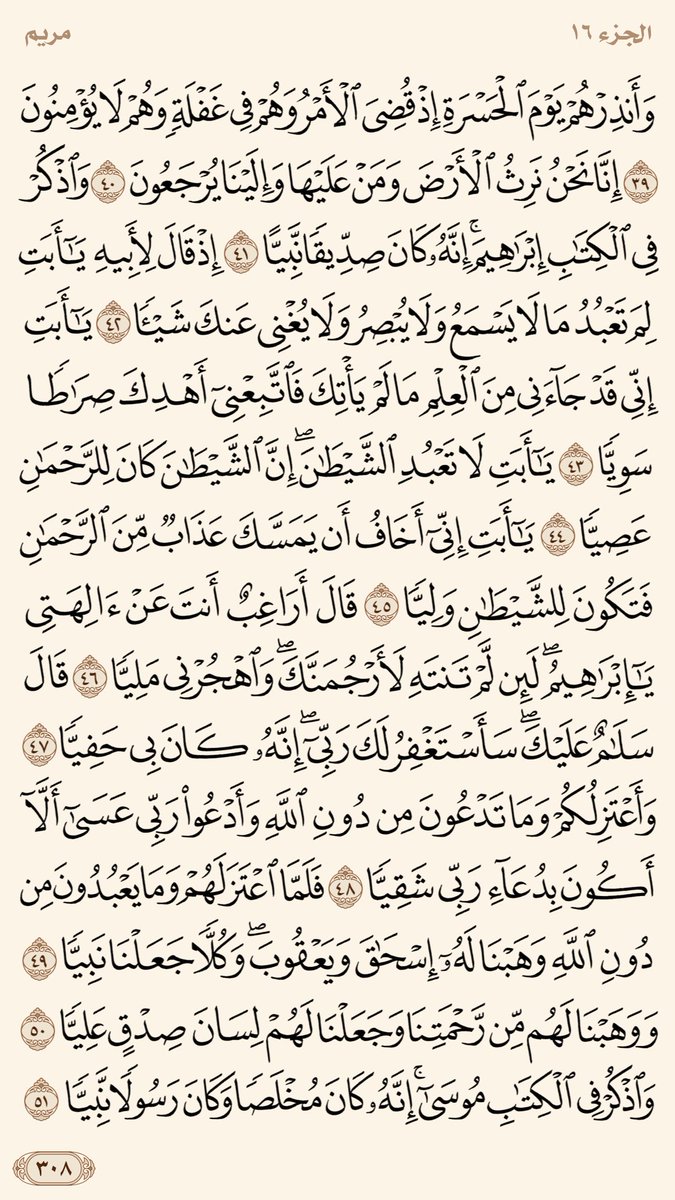 الجزء ١٦ مريم
وَأَنذِرْهُمْ يَوْمَ ٱلْحَسْرَةِ إِذْ قُضِىَ ٱلْأَمْرُ وَهُمْ فِى غَفْلَةٍ وَهُمْ لَا يُؤْمِنُونَ
٣٩ إِنَّا نَحْنُ نَرِثُ ٱلْأَرْضَ وَمَنْ عَلَيْهَا وَإِلَيْنَا يُرْجَعُونَ ٤٠ وَٱذْكُرْ
فِى ٱلْكِتَٰبِ إِبْرَٰهِيمَ ۚ إِنَّهُۥ كَانَ صِدِّيقًا نَّبِيًّا ٤١ إِذْ قَالَ لِأَبِيهِ يَٰٓأَبَتِ
لِمَ تَعْبُدُ مَا لَا يَسْمَعُ وَلَا يُبْصِرُ وَلَا يُغْنِى عَنكَ شَيْـًٔا ٤٢ يَٰٓأَبَتِ
إِنِّى قَدْ جَآءَنِى مِنَ ٱلْعِلْمِ مَا لَمْ يَأْتِكَ فَٱتَّبِعْنِىٓ أَهْدِكَ صِرَٰطًا
سَوِيًّا ٤٣ يَٰٓأَبَتِ لَا تَعْبُدِ ٱلشَّيْطَٰنَ ۖ إِنَّ ٱلشَّيْطَٰنَ كَانَ لِلرَّحْمَٰنِ
عَصِيًّا ٤٤ يَٰٓأَبَتِ إِنِّىٓ أَخَافُ أَن يَمَسَّكَ عَذَابٌ مِّنَ ٱلرَّحْمَٰنِ
فَتَكُونَ لِلشَّيْطَٰنِ وَلِيًّا ٤٥ قَالَ أَرَاغِبٌ أَنتَ عَنْ ءَالِهَتِى
يَٰٓإِبْرَٰهِيمُ ۖ لَئِن لَّمْ تَنتَهِ لَأَرْجُمَنَّكَ ۖ وَٱهْجُرْنِى مَلِيًّا ٤٦ قَالَ
سَلَٰمٌ عَلَيْكَ ۖ سَأَسْتَغْفِرُ لَكَ رَبِّىٓ ۖ إِنَّهُۥ كَانَ بِى حَفِيًّا ٤٧
وَأَعْتَزِلُكُمْ وَمَا تَدْعُونَ مِن دُونِ ٱللَّهِ وَأَدْعُوا۟ رَبِّى عَسَىٰٓ أَلَّآ
أَكُونَ بِدُعَآءِ رَبِّى شَقِيًّا ٤٨ فَلَمَّا ٱعْتَزَلَهُمْ وَمَا يَعْبُدُونَ مِن
دُونِ ٱللَّهِ وَهَبْنَا لَهُۥٓ إِسْحَٰقَ وَيَعْقُوبَ ۖ وَكُلًّا جَعَلْنَا نَبِيًّا ٤٩
وَوَهَبْنَا لَهُم مِّن رَّحْمَتِنَا وَجَعَلْنَا لَهُمْ لِسَانَ صِدْقٍ عَلِيًّا ٥٠
وَٱذْكُرْ فِى ٱلْكِتَٰبِ مُوسَىٰٓ ۚ إِنَّهُۥ كَانَ مُخْلَصًا وَكَانَ رَسُولًا نَّبِيًّا ٥١
٣٠٨